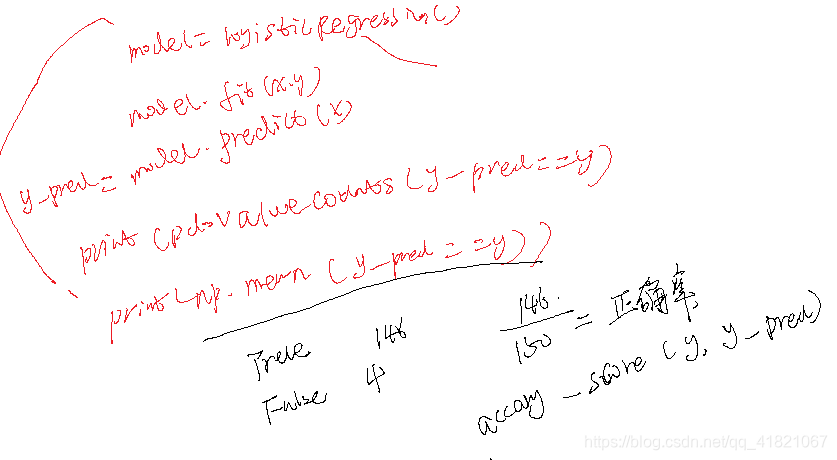 model=logisticRegression()
model.fit(x.y)
y_pred=model.predict(x)
print(pd.value_counts(y_pred==y)
print(np.mean(y_pred==y))
True 146
False 4
146/150=正确率
accary_score(y, y_pred)
https://blog.csdn.net/qq_41821067